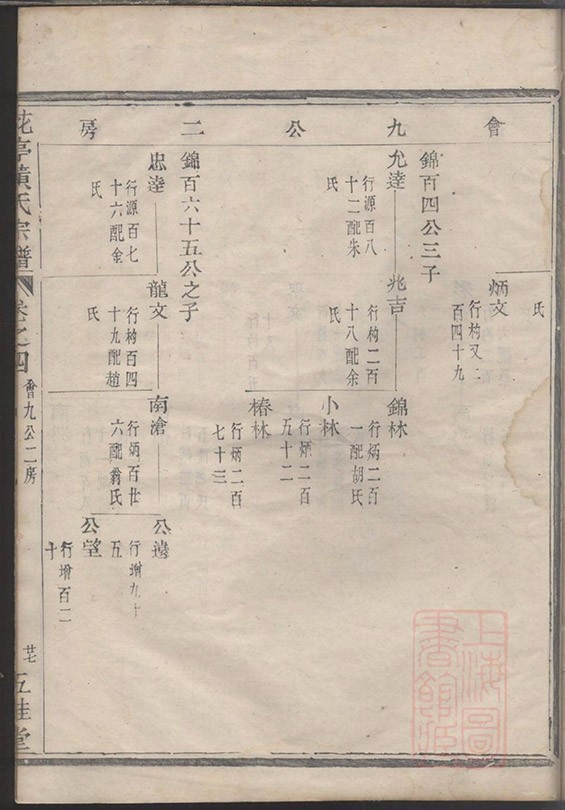 會九公二房
氏
炳文
行杓又二
百四十九
錦百四公三子
允逵
行源百八
十二配朱
氏
兆吉
行杓二百
十八配余
氏
錦林
行炳二百
一配胡氏
小林
行炳二百
五十二
椿林
行炳二百
七十三
錦百六十五公之子
忠逵
行源百七
十六配金
氏
龍文
行杓百四
十九配趙
氏
南滄
行炳百廿
六配翁氏
公遠
行增九十
五
公望
行增百二
十
花亭黃氏宗譜
卷之四
會九公二房
廿七
五桂堂
上海圖
書館藏